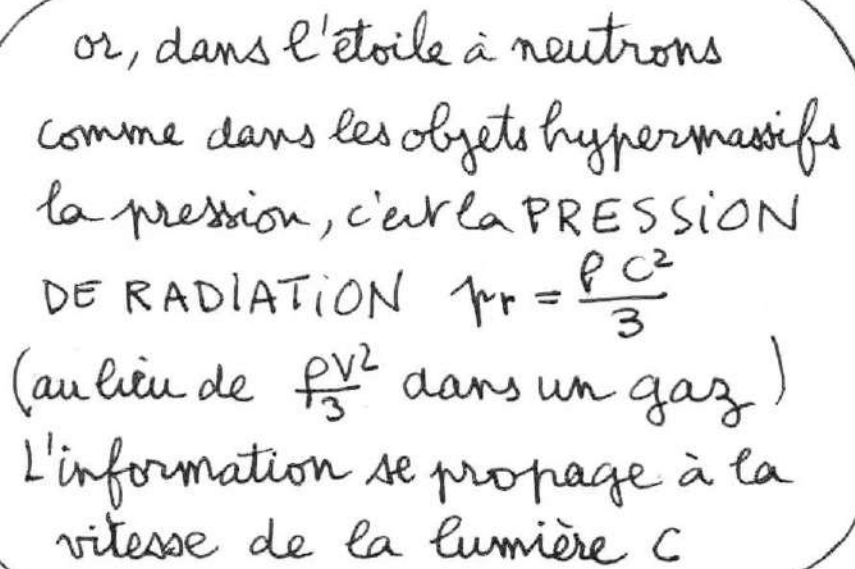 or, dans l'étoile à neutrons
comme dans les objets hypermassifs
la pression, c'est la PRESSION
DE RADIATION pr = ρc²/3
(au lieu de ρv²/3 dans un gaz)
L'information se propage à la
vitesse de la lumière c